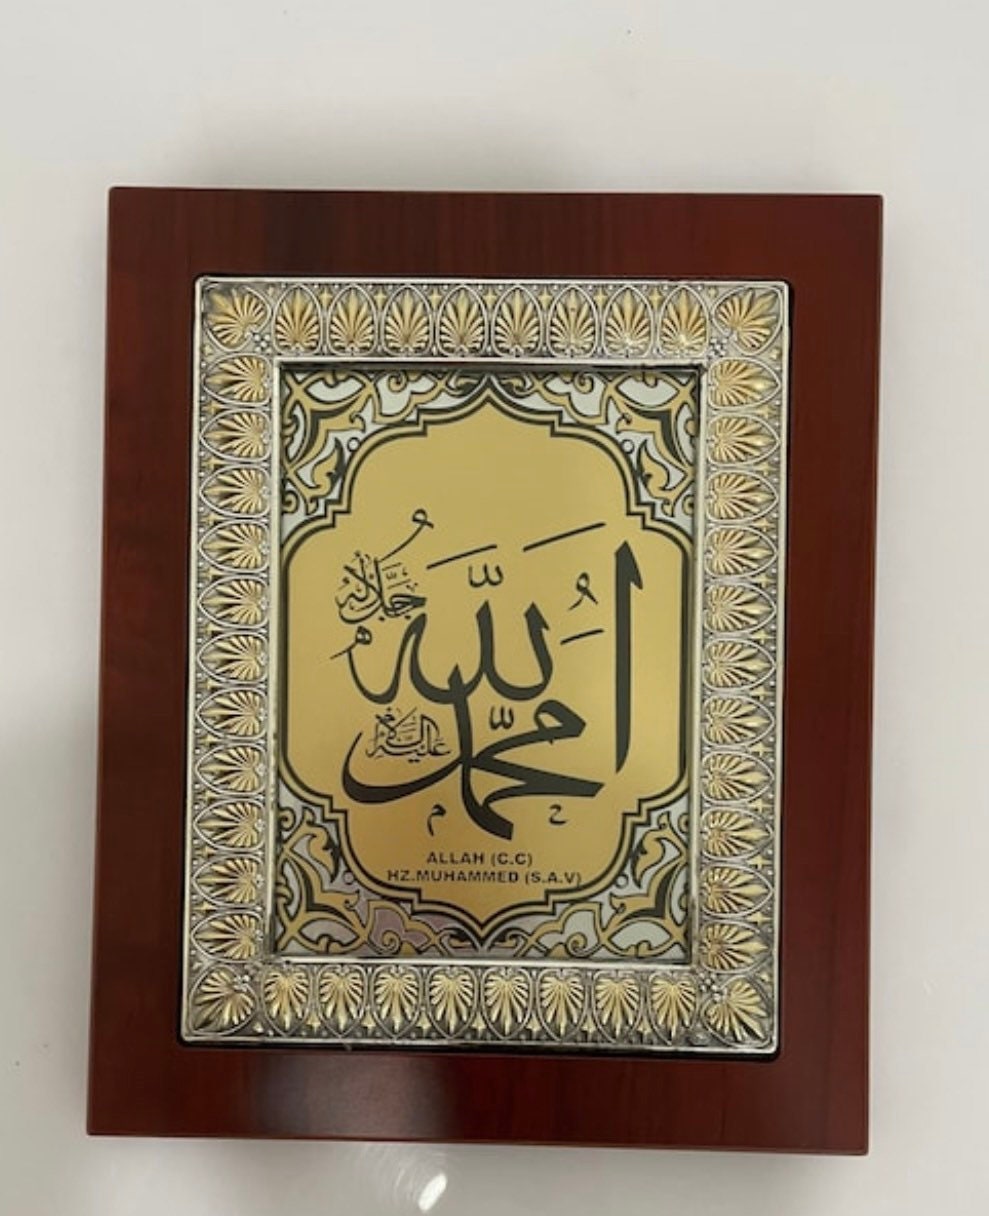 الله
جل جلاله
محمد
عليه السلام
م ح
ALLAH (C.C)
HZ.MUHAMMED (S.A.V)